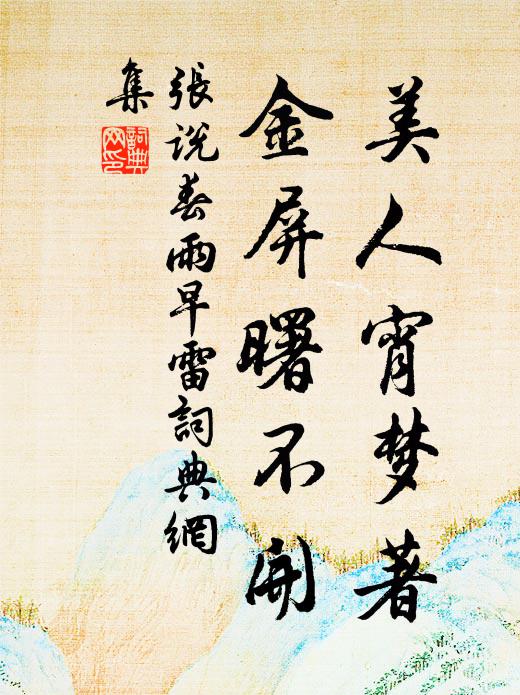 美人宵梦著
金屏曙不開
張說春雨早雷詞典網
集
詞典
网印